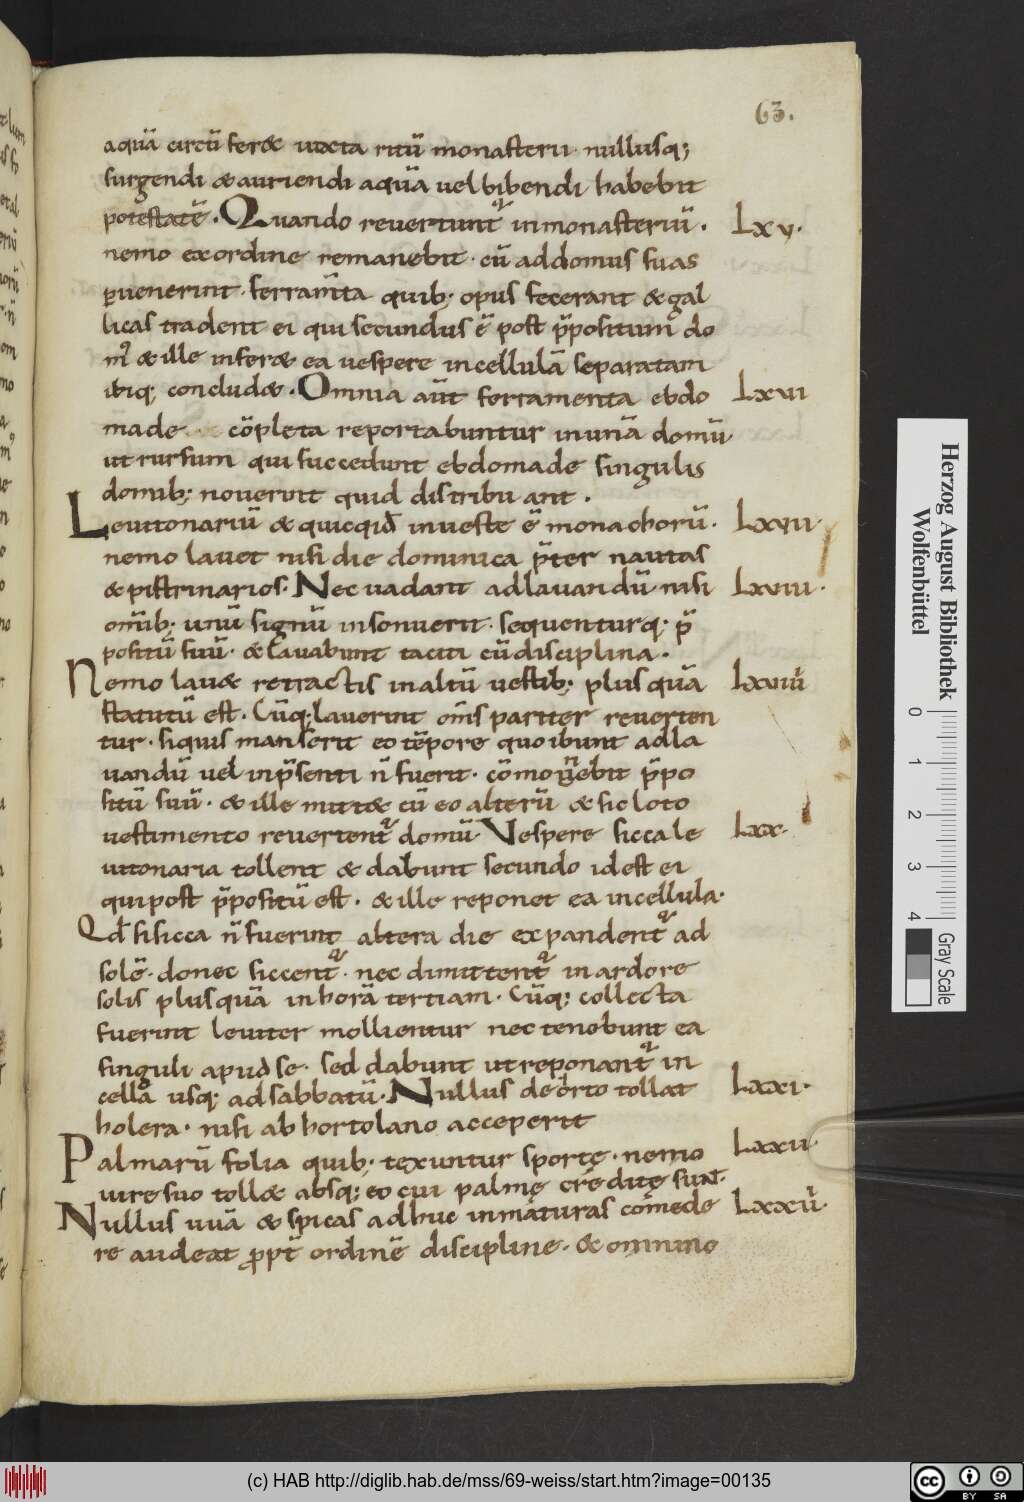 63.
aquā circū feret iuxta ritū monasterii nullusq;
surgendi & auriendi aquā uel bibendi habebit
potestatē. Quando reuertunt᷑ inmonasteriū. Lxv.
nemo exordine remanebit. cū addomus suas
puenerint. ferram̄ta quib; opus fecerant & gal
licas tradent ei qui secundus ē post p̄positum do
m' & ille inferet ea uespere incellulā separatam
ibiq; concludet. Omnia aūt ferramenta ebdo Lxvi
māde cōpleta reportabuntur inunā domū
ut rursum qui succedunt ebdomade singulis
domib; nouerint quid distribuant.
Leuitonariū & quicqid inueste ē monachorū. Lxvii.
nemo lauet nisi die dominica p̄ter nautas
& pistrinarios. Nec uadant adlauandū nisi Lxviii.
omīb; unū signū insonuerit. sequenturq; p̄
positū suū. & Lauabunt taciti cū disciplina.
Nemo lauet retractis inaltū uestib; plus quā Lxviiii
statutū est. Cūq; lauerint om̄s pariter reuerten
tur. siquis manserit eo tēpore quo ibunt adla
uandū uel inp̄senti n̄ fuerit. cōmonebit p̄po
sitū suū. & ille mittet cū eo alterū & sic loto
uestimento reuertent᷑ domū Vespere sicca le Lxx.
uitonaria tollent & dabunt secundo idest ei
qui post p̄positū est. & ille reponet ea incellula.
Qd̄ si sicca n̄ fuerint altera die expandent᷑ ad
solē. donec siccent᷑. nec dimittent᷑ in ardore
solis plus quā in horā tertiam. Cūq; collecta
fuerint leuiter mollientur nec tenebunt ea
singuli apud se. sed dabunt ut reponant᷑ in
cellā usq; adsabbatū. Nullus de orto tollat Lxxi.
holera. nisi ab hortolano acceperit
Palmarū folia quib; texuntur sportę. nemo Lxxii.
uire suo tollet absq; eo cui palmę crēditę sunt.
Nullus uuā & spicas adhuc inmaturas cōmede Lxxiii.
re audeat ꝓpt̄ ordinē discipline. & omnino
Herzog August Bibliothek
Wolfenbüttel
0 1 2 3 4
Gray Scale
(c) HAB http://diglib.hab.de/mss/69-weiss/start.htm?image=00135
cc BY SA